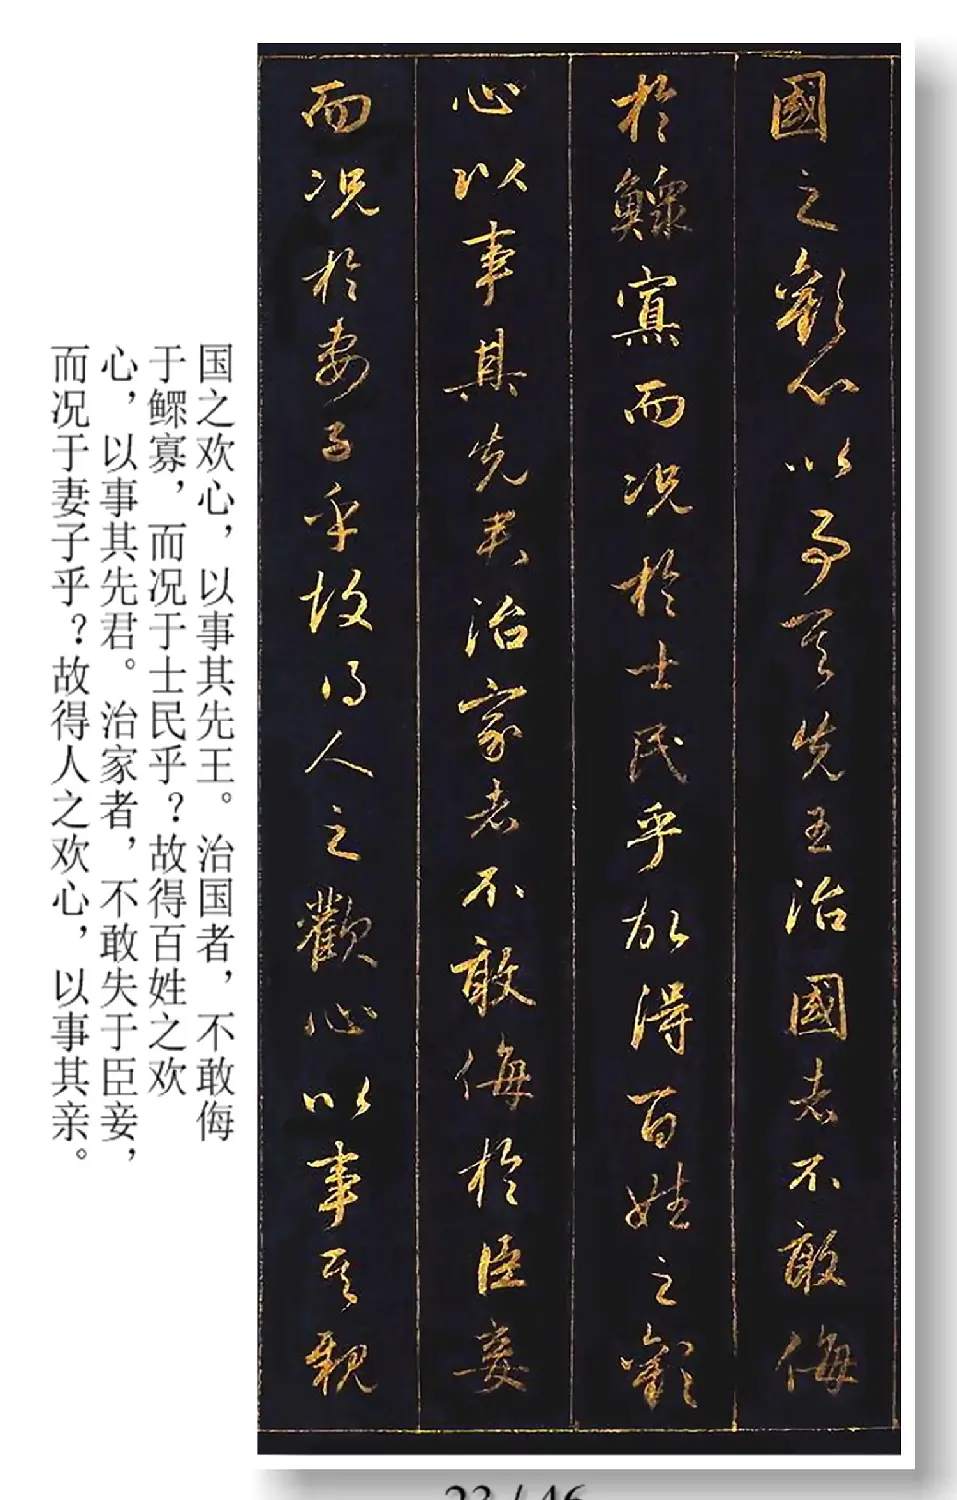 國之歡心以事其先王治國者不敢侮
於鰥寡而况於士民乎故得百姓之歡
心以事其先君治家者不敢侮於臣妾
而况於妻子乎故得人之歡心以事其親
国之欢心，以事其先王。治国者，不敢侮
于鳏寡，而况于士民乎？故得百姓之欢
心，以事其先君。治家者，不敢失于臣妾，
而况于妻子乎？故得人之欢心，以事其亲。
23 / 46